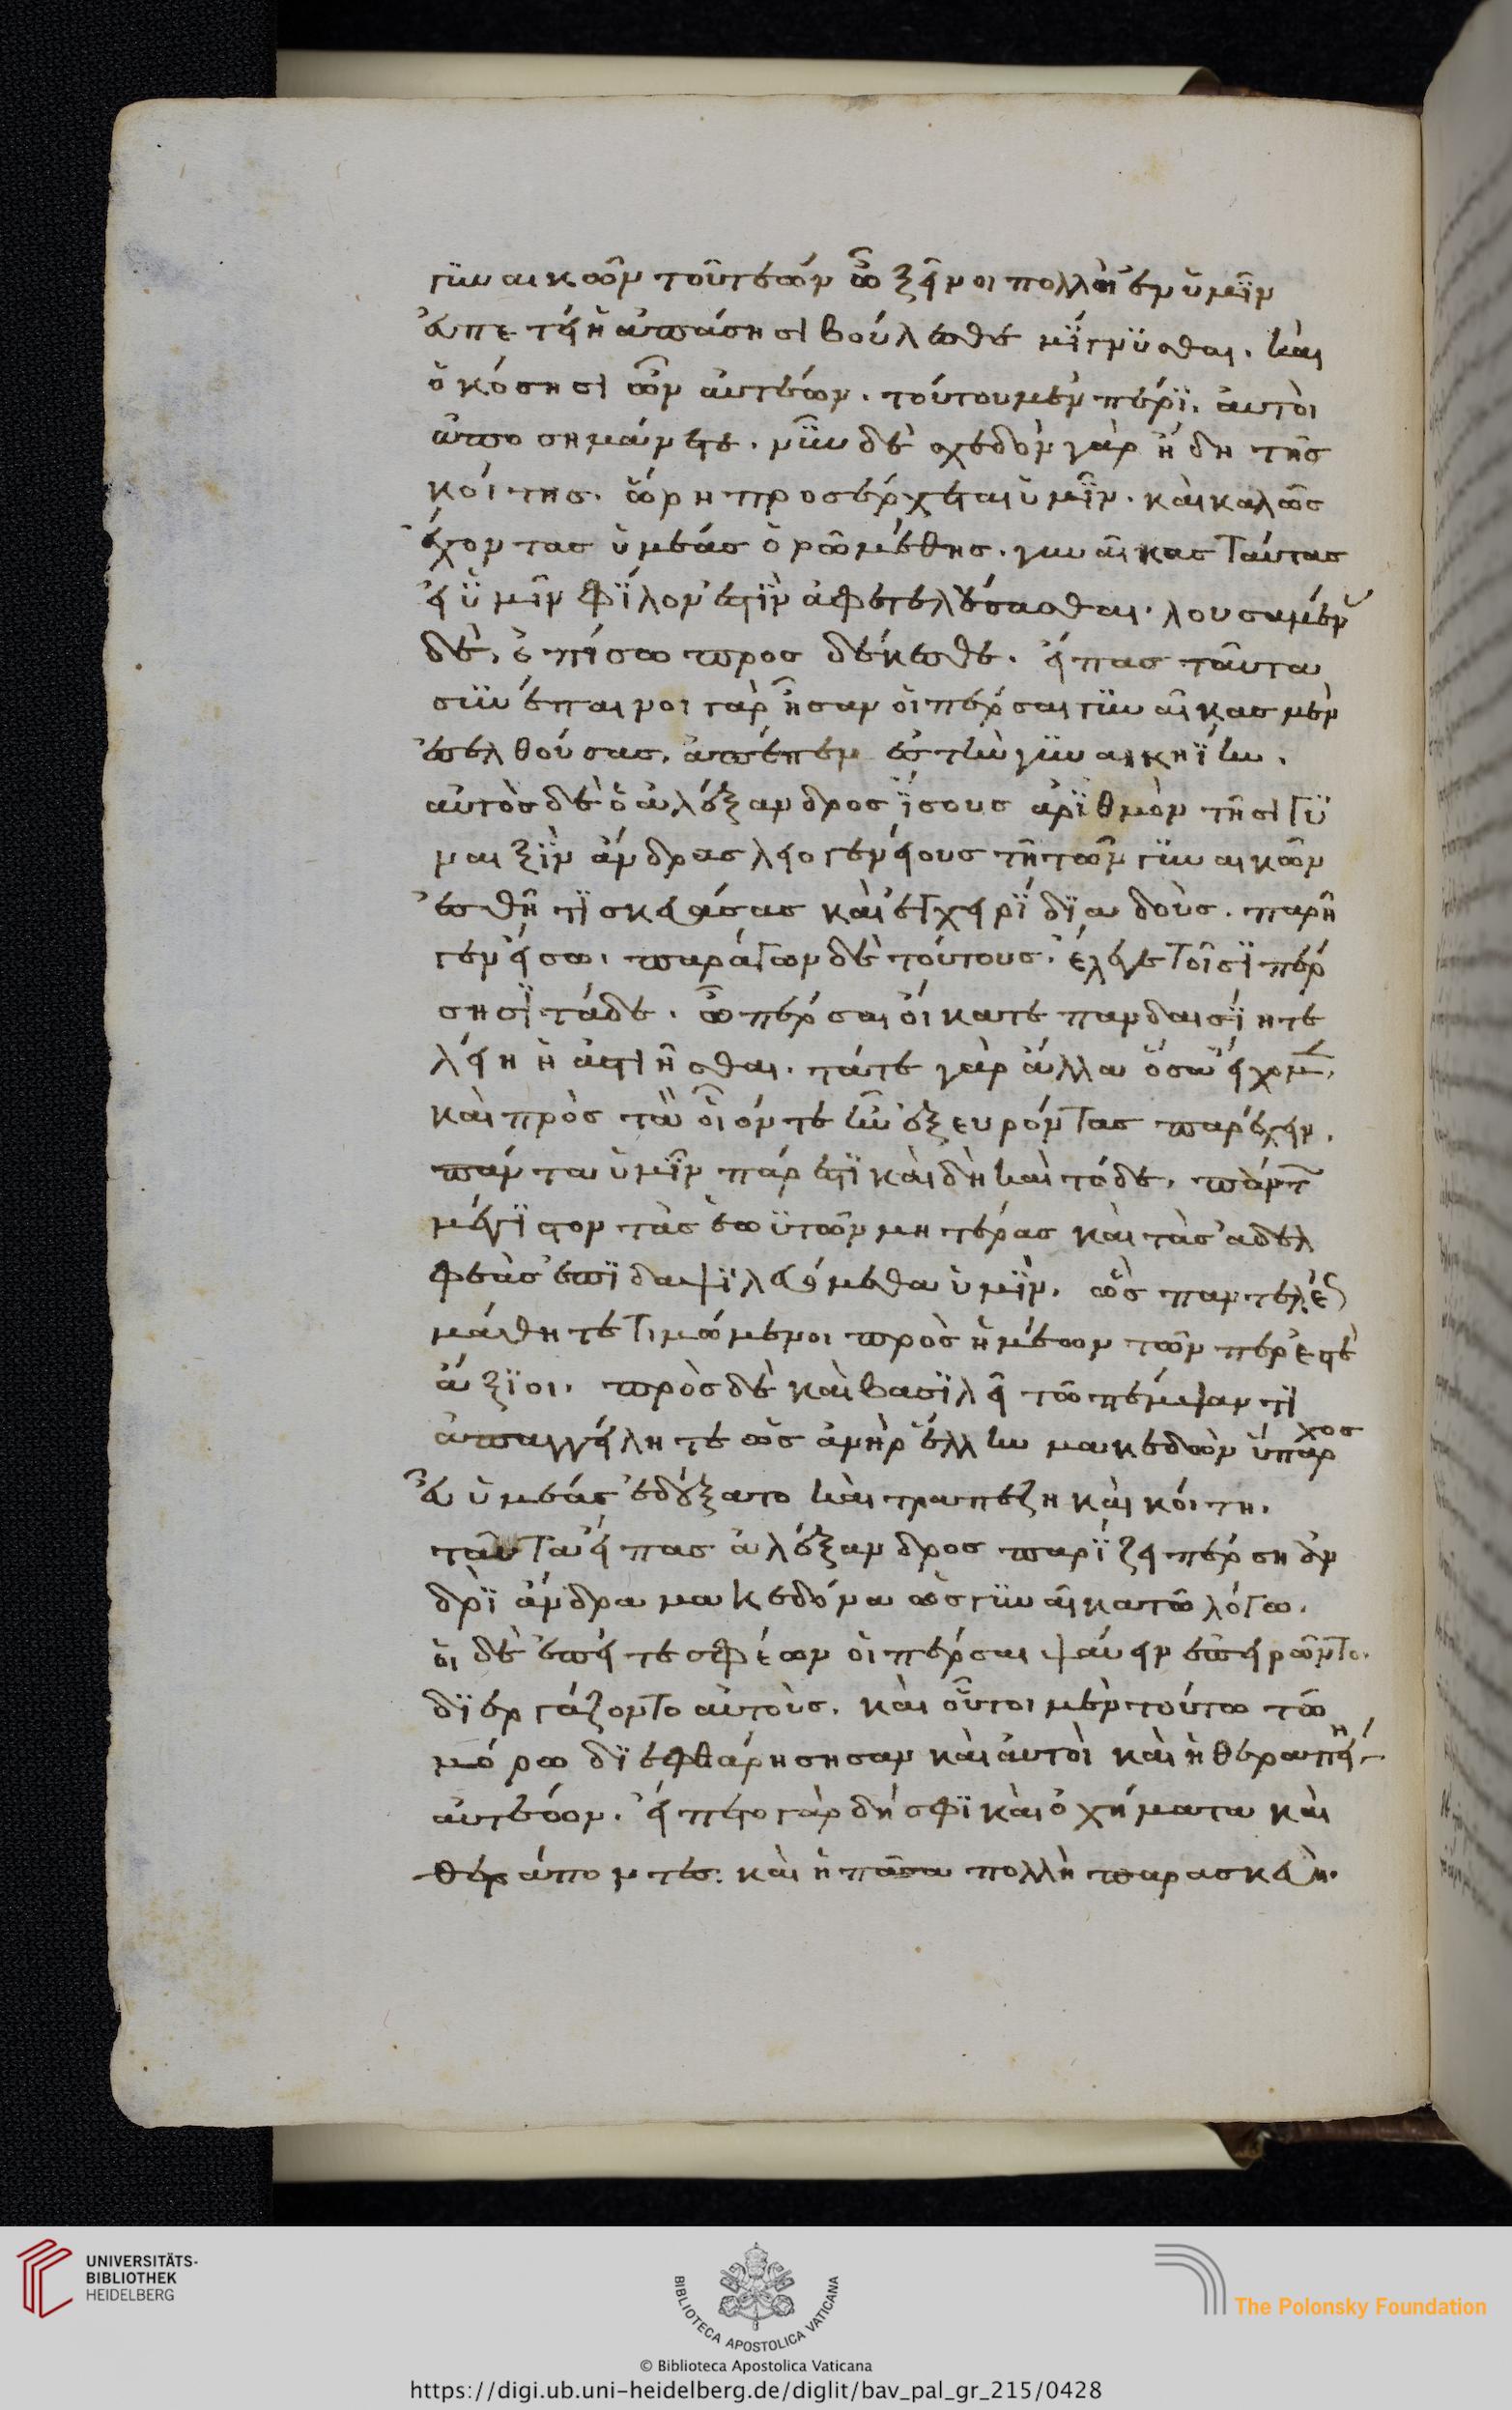 γϋναικῶν τουτεών ὦ ξεῖνοι πολλὴ ἐν ὑμῖν
ἐυπετείη ἁπάσησι βούλεσθε μίγνϋσθαι. καὶ
ὁκόσησι ὦν ἀυτεών. τούτου μὲν πέρι. ἀυτοὶ
ἀποσημανέετε. νῦν δὲ σχεδὸν γὰρ ἤδη τῆς
κοίτης. ὥρη προσέρχεται ὑμῖν. καὶ καλῶς
ἔχοντας ὑμέας ὁρῶ μέθης. γυναῖκας ταύτας
εἰ ὑμῖν φίλον ἐστὶν ἄφετε λούσασθαι. λουσαμέν
δὲ, ὀπίσω προσδέκεσθε. εἴπας ταῦτα
σϋνέπαινοι γὰρ ἦσαν οἱ πέρσαι γϋναῖκας μὲν
ἐξελθούσας, ἀπέπεμ ἐς τὴν γϋναικηίην.
αὐτὸς δὲ ὁ ἀλέξανδρος ἴσους ἀριθμὸν τῆσι γϋ
ναιξὶν ἄνδρας λειογενείους τῆ τῶν γϋναικῶν
ἐσθῆτι σκευάσας καὶ ἐγχειρίδια δοὺς. παρῆ
γεν ἔσω. παράγων δὲ τούτους. ἔλεγε τοῖσι πέρ
σησι τάδε. ὦ πέρσαι οἴκατε πανδαισίη τε
λείη ἱστιῆσθαι. τάτε γὰρ ἄλλα ὅσα εἴχομεν,
καὶ πρὸς τὰ οἷόντε ἦν ἐξευρόντας παρέχειν.
πάντα ὑμῖν πάρεστι καὶ δὴ καὶ τόδε. πάντ
μέγιστον τάς ἑωϋτῶν μητέρας καὶ τὰς ἀδελ
φεὰς ἐπιδαψιλευόμεθα ὑμῖν. ὡς παντελέως
μάθητε τιμώμενοι πρὸς ἡμέων τῶν πέρ ἐστὲ
ἄξιοι. πρὸς δὲ καὶ βασιλεῖ τῶ πέμψαντι
ἀπαγγείλητε ὡς ἀνὴρ ἕλλην μακεδὼν ὕπαρχος
εὖ ὑμέας ἐδέξατο καὶ τραπέζη καὶ κοίτη.
ταῦτα εἴπας ἀλέξανδρος παρίζει πέρση ἀν
δρὶ ἄνδρα μακεδόνα ὡς γϋναῖκα τῶ λόγω.
οἱ δὲ ἐπείτε σφέων οἱ πέρσαι ψαύειν ἐπειρῶντο.
διεργάζοντο αὐτοὺς. καὶ οὗτοι μὲν τούτω τῶ
μόρω διεφθάρησησαν καὶ ἀυτοὶ καὶ ἡ θεραπηίη
ἀυτεών. εἵπετο γὰρ δή σφι καὶ ὀχήματα καὶ
θεράποντες. καὶ ἡ πᾶσα πολλὴ παρασκευή.
UNIVERSITÄTS-
BIBLIOTHEK
HEIDELBERG
BIBLIOTECA APOSTOLICA VATICANA
The Polonsky Foundation
© Biblioteca Apostolica Vaticana
https://digi.ub.uni-heidelberg.de/diglit/bav_pal_gr_215/0428